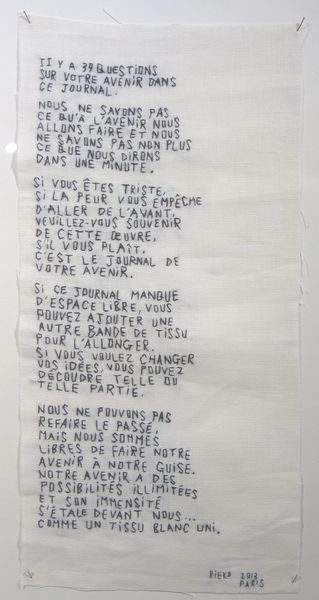 IL Y A 39 QUESTIONS
SUR VOTRE AVENIR DANS
CE JOURNAL.
NOUS NE SAVONS PAS
CE QU'À L'AVENIR NOUS
ALLONS FAIRE ET NOUS
NE SAVONS PAS NON PLUS
CE QUE NOUS DIRONS
DANS UNE MINUTE.
SI VOUS ÊTES TRISTE,
SI LA PEUR VOUS EMPÊCHE
D'ALLER DE L'AVANT,
VEUILLEZ-VOUS SOUVENIR
DE CETTE ŒUVRE,
S'IL VOUS PLAÎT.
C'EST LE JOURNAL DE
VOTRE AVENIR.
SI CE JOURNAL MANQUE
D'ESPACE LIBRE, VOUS
POUVEZ AJOUTER UNE
AUTRE BANDE DE TISSU
POUR L'ALLONGER.
SI VOUS VOULEZ CHANGER
VOS IDÉES, VOUS POUVEZ
DÉCOUDRE TELLE OU
TELLE PARTIE.
NOUS NE POUVONS PAS
REFAIRE LE PASSÉ,
MAIS NOUS SOMMES
LIBRES DE FAIRE NOTRE
AVENIR À NOTRE GUISE.
NOTRE AVENIR A DES
POSSIBILITÉS ILLIMITÉES
ET SON IMMENSITÉ
S'ÉTALE DEVANT NOUS...
COMME UN TISSU BLANC UNI.
RIEKO 2013
PARIS